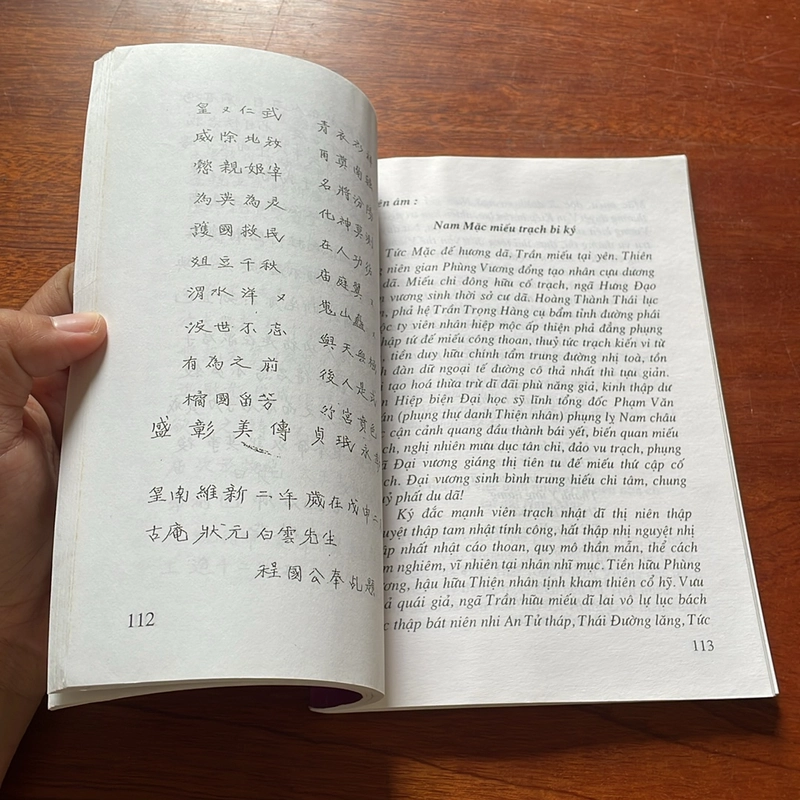 皇乂仁武 青衣
威除 再奠南
懋親姬宰 名將汾
為英為灵 化神莫測
護國救民 在人功
俎豆千秋 庙庭翼
渭水洋又 山
没世不忘 與天無
有為之前 後人是式
橘國留芳 竹宮賁色
盛彰美傳 貞珉永
皇南維新二年歲在戊申二
古庵狀元白雲先生
程國公奉乩題
112
ên âm :
Nam Mặc miếu trạch bi ký
Tức Mặc đế hương dã. Trần miếu tại yên. Thiên
niên gian Phùng Vương đổng tạo nhân cựu dương
dã. Miếu chi đông hữu cố trạch, ngã Hưng Đạo
vương sinh thời sở cư dã. Hoàng Thành Thái lục
phả hệ Trần Trọng Hàng cụ bẩm tỉnh đường phái
ộc ty viên nhân hiệp mộc ấp thiện phả đẳng phụng
hập tứ để miếu công thoan, thuỷ tức trạch kiến vi từ
tiền duy hữu chinh tẩm trung đường nhị toà, tồn
đàn dữ ngoại tế đường cô thả nhất thì tựu giản.
tạo hoá thừa trừ dĩ đãi phù năng giả, kinh thập dư
Hiệp biện Đại học sỹ lĩnh tổng đốc Phạm Văn
ân (phụng thự danh Thiện nhân) phụng lỵ Nam châu
cận cảnh quang đầu thành bái yết, biến quan miếu
ch, nghị nhiên mưu dục tân chi, đảo vu trạch, phụng
Đại vương giáng thị tiên tu đế miếu thứ cập cố
h. Đại vương sinh bình trung hiếu chi tâm, chung
uỷ phất du dã!
Ký đắc mạnh viên trạch nhật dĩ thị niên thập
uyệt thập tam nhật tính công, hất thập nhị nguyệt nhị
hập nhất nhật cáo thoan, quy mô thần mẫn, thể cách
m nghiêm, vĩ nhiên tại nhân nhĩ mục. Tiền hữu Phùng
ương, hậu hữu Thiện nhân tịnh kham thiên cổ hỹ. Vưu
ả quái giả, ngã Trần hữu miếu dĩ lai vô lự lục bách
thập bát niên nhi An Tử tháp, Thái Đường lăng, Tức
113